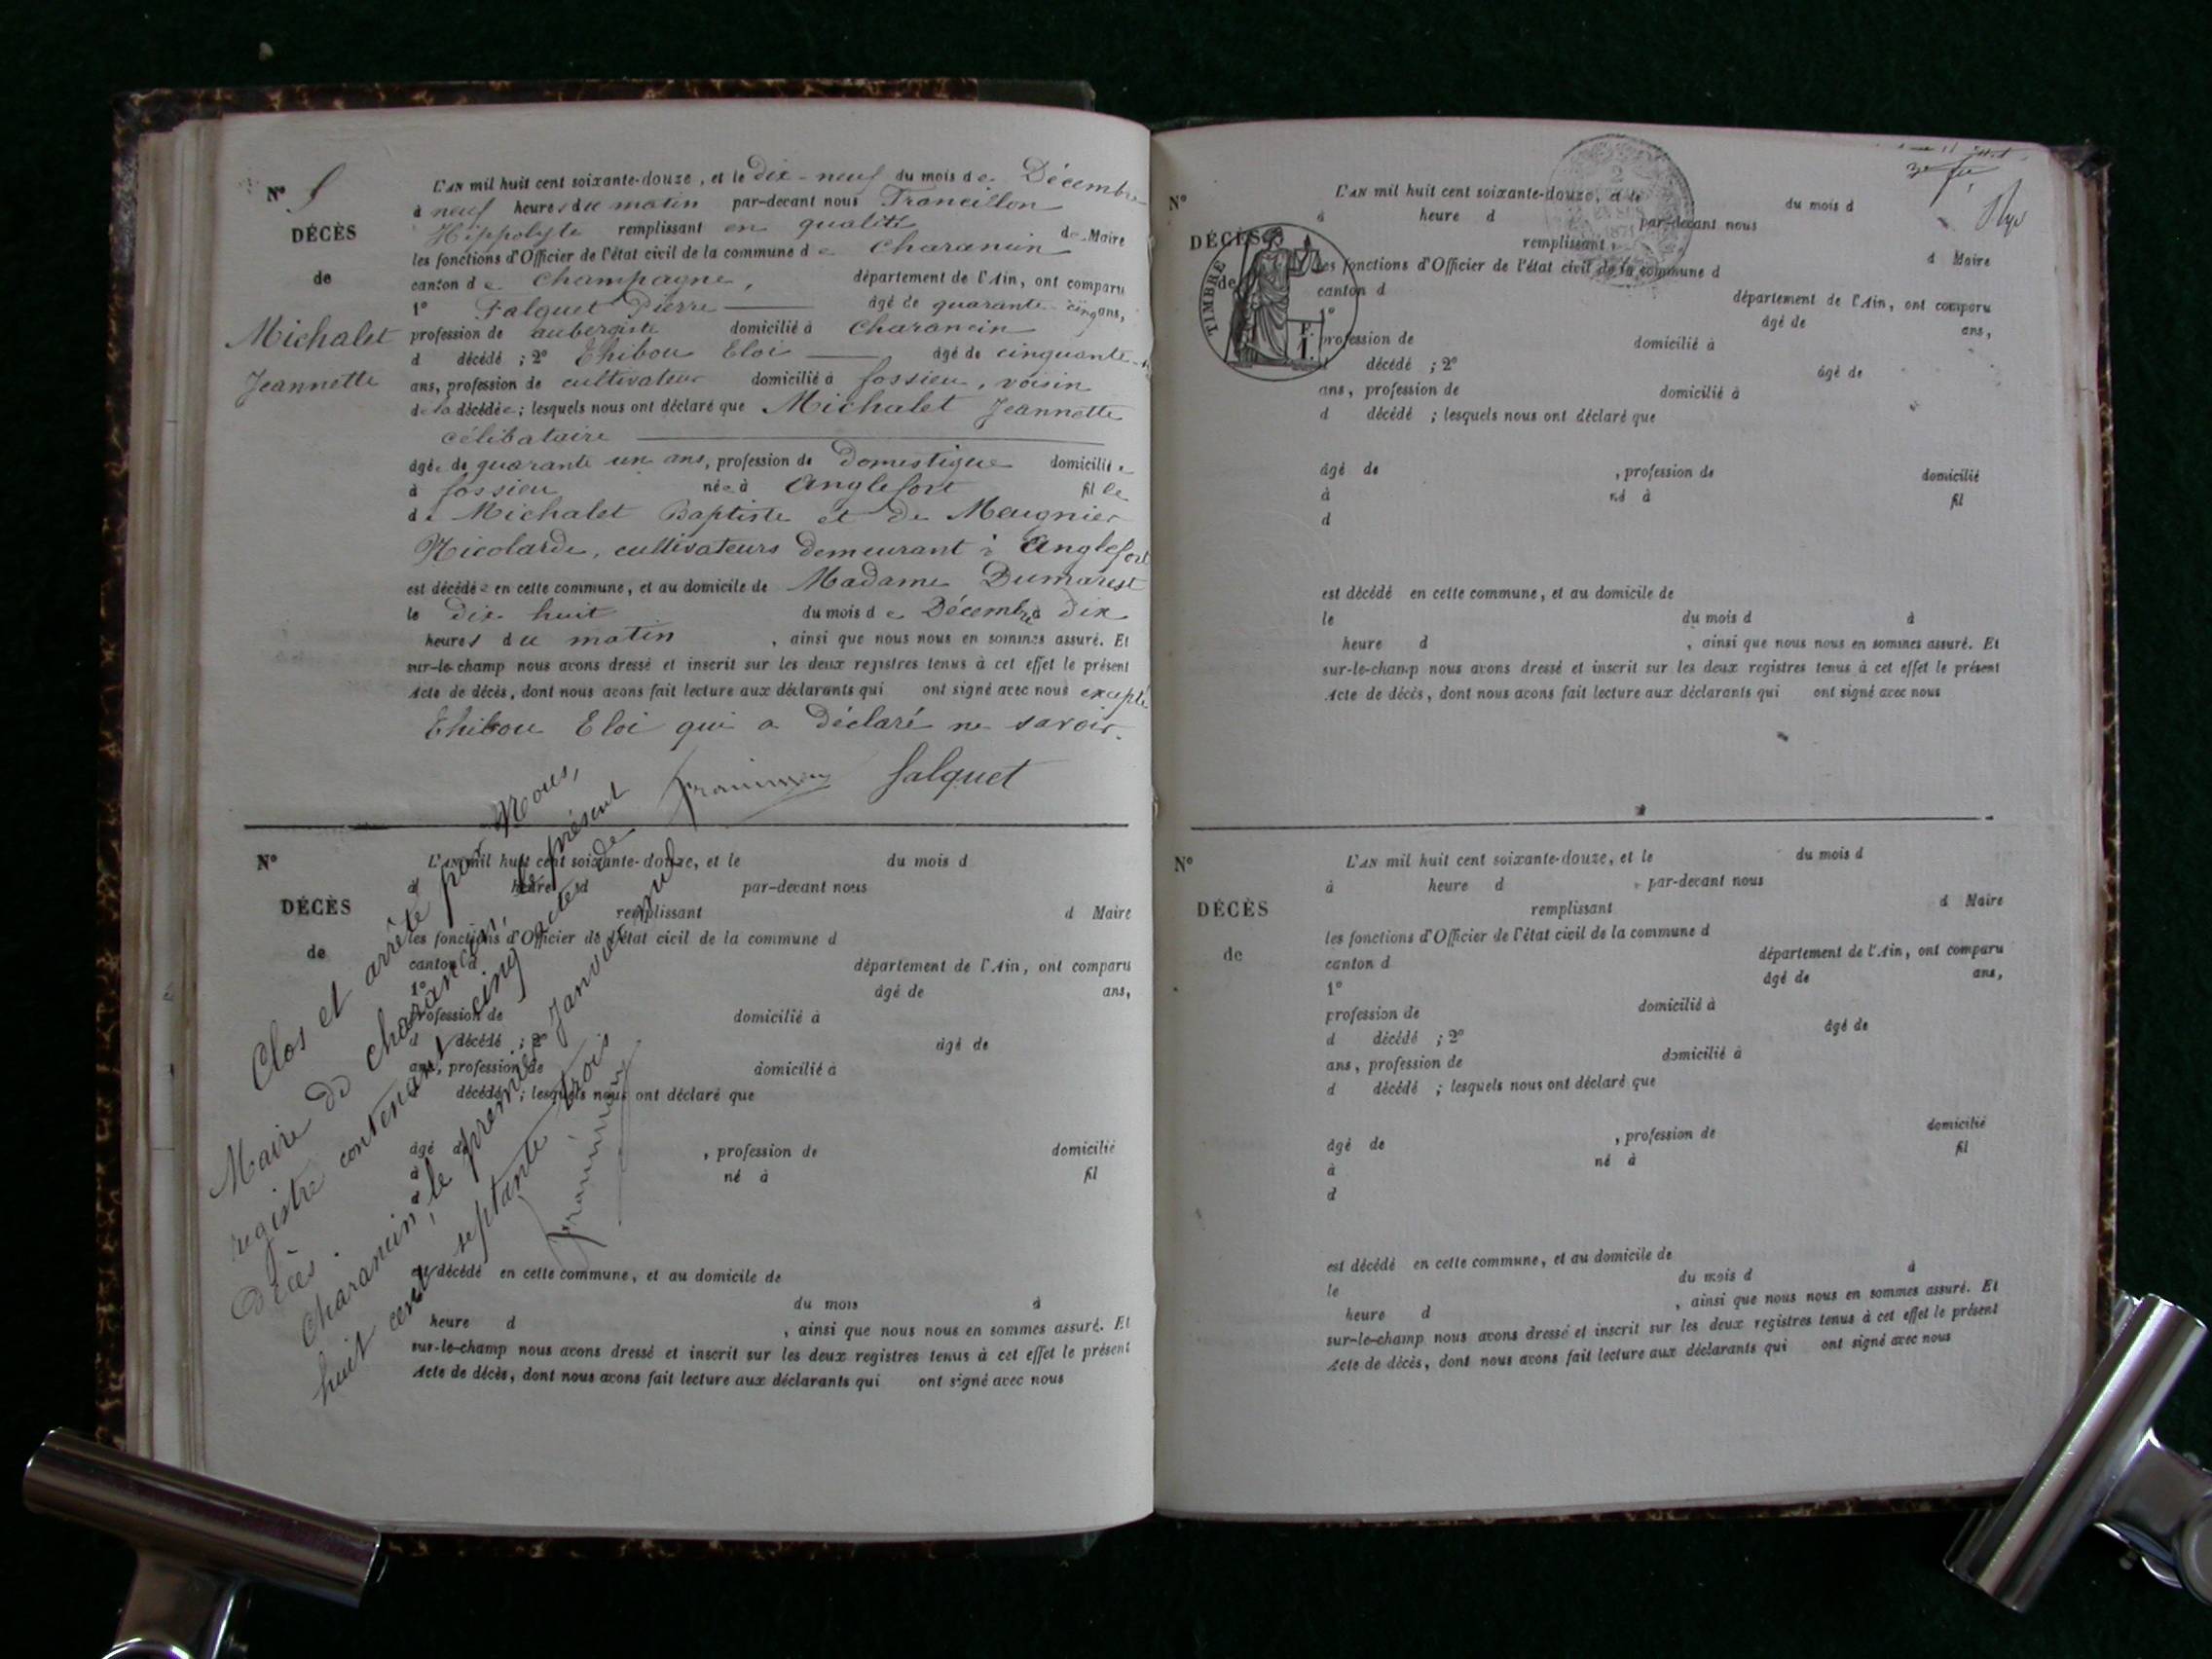 N° 5
DÉCÈS
de
Michalet
Jeannette
L'AN mil huit cent soixante-douze, et le dix-neuf du mois de Décembre
à neuf heures du matin par-devant nous Francillon
Hippolyte remplissant en qualité de Maire
les fonctions d'Officier de l'état civil de la commune de Charancin
canton de Champagne, département de l'Ain, ont comparu
1° Falquet Pierre âgé de quarante-cinq ans,
profession de aubergiste domicilié à Charancin
d décédé ; 2° Thibou Eloi âgé de cinquante-
ans, profession de cultivateur domicilié à fossieu, voisin
de la décédée ; lesquels nous ont déclaré que Michalet Jeannette
célibataire
âgée de quarante un ans, profession de Domestique domiciliée
à fossieu née à Anglefort fille
de Michalet Baptiste et de Meugnier
Nicolarde, cultivateurs demeurant à Anglefort
est décédée en cette commune, et au domicile de Madame Dumarest
le dix huit du mois de Décembre à dix
heures du matin , ainsi que nous nous en sommes assuré. Et
sur-le-champ nous avons dressé et inscrit sur les deux registres tenus à cet effet le présent
Acte de décès, dont nous avons fait lecture aux déclarants qui ont signé avec nous excepté
Thibou Eloi qui a déclaré ne savoir.
falquet
N°
DÉCÈS
de
L'AN mil huit cent soixante-douze, et le du mois d
à heure d par-devant nous
remplissant d Maire
les fonctions d'Officier de l'état civil de la commune d
canton d département de l'Ain, ont comparu
1° âgé de ans,
profession de domicilié à
d décédé ; 2° âgé de
ans, profession de domicilié à
décédé ; lesquels nous ont déclaré que
âgé de , profession de domicilié
à né à fil
d
est décédé en cette commune, et au domicile de
du mois à
heure d , ainsi que nous nous en sommes assuré. Et
sur-le-champ nous avons dressé et inscrit sur les deux registres tenus à cet effet le présent
Acte de décès, dont nous avons fait lecture aux déclarants qui ont signé avec nous
Clos et arrêté par Nous,
Maire de Charancin, le présent
registre contenant cinq actes de
Décès.
Charancin, le premier Janvier mil
huit cent septante trois
N°
DÉCÈS
de
TIMBRE
L'AN mil huit cent soixante-douze, et le du mois d
à heure d par-devant nous
remplissant d Maire
les fonctions d'Officier de l'état civil de la commune d
canton d département de l'Ain, ont comparu
1° âgé de ans,
profession de domicilié à
d décédé ; 2° âgé de
ans, profession de domicilié à
d décédé ; lesquels nous ont déclaré que
âgé de , profession de domicilié
à né à fil
d
est décédé en cette commune, et au domicile de
le du mois d à
heure d , ainsi que nous nous en sommes assuré. Et
sur-le-champ nous avons dressé et inscrit sur les deux registres tenus à cet effet le présent
Acte de décès, dont nous avons fait lecture aux déclarants qui ont signé avec nous
N°
DÉCÈS
de
L'AN mil huit cent soixante-douze, et le du mois d
à heure d par-devant nous
remplissant d Maire
les fonctions d'Officier de l'état civil de la commune d
canton d département de l'Ain, ont comparu
1° âgé de ans,
profession de domicilié à
d décédé ; 2° âgé de
ans, profession de domicilié à
d décédé ; lesquels nous ont déclaré que
âgé de , profession de domicilié
à né à fil
d
est décédé en cette commune, et au domicile de
le du mois d à
heure d , ainsi que nous nous en sommes assuré. Et
sur-le-champ nous avons dressé et inscrit sur les deux registres tenus à cet effet le présent
Acte de décès, dont nous avons fait lecture aux déclarants qui ont signé avec nous